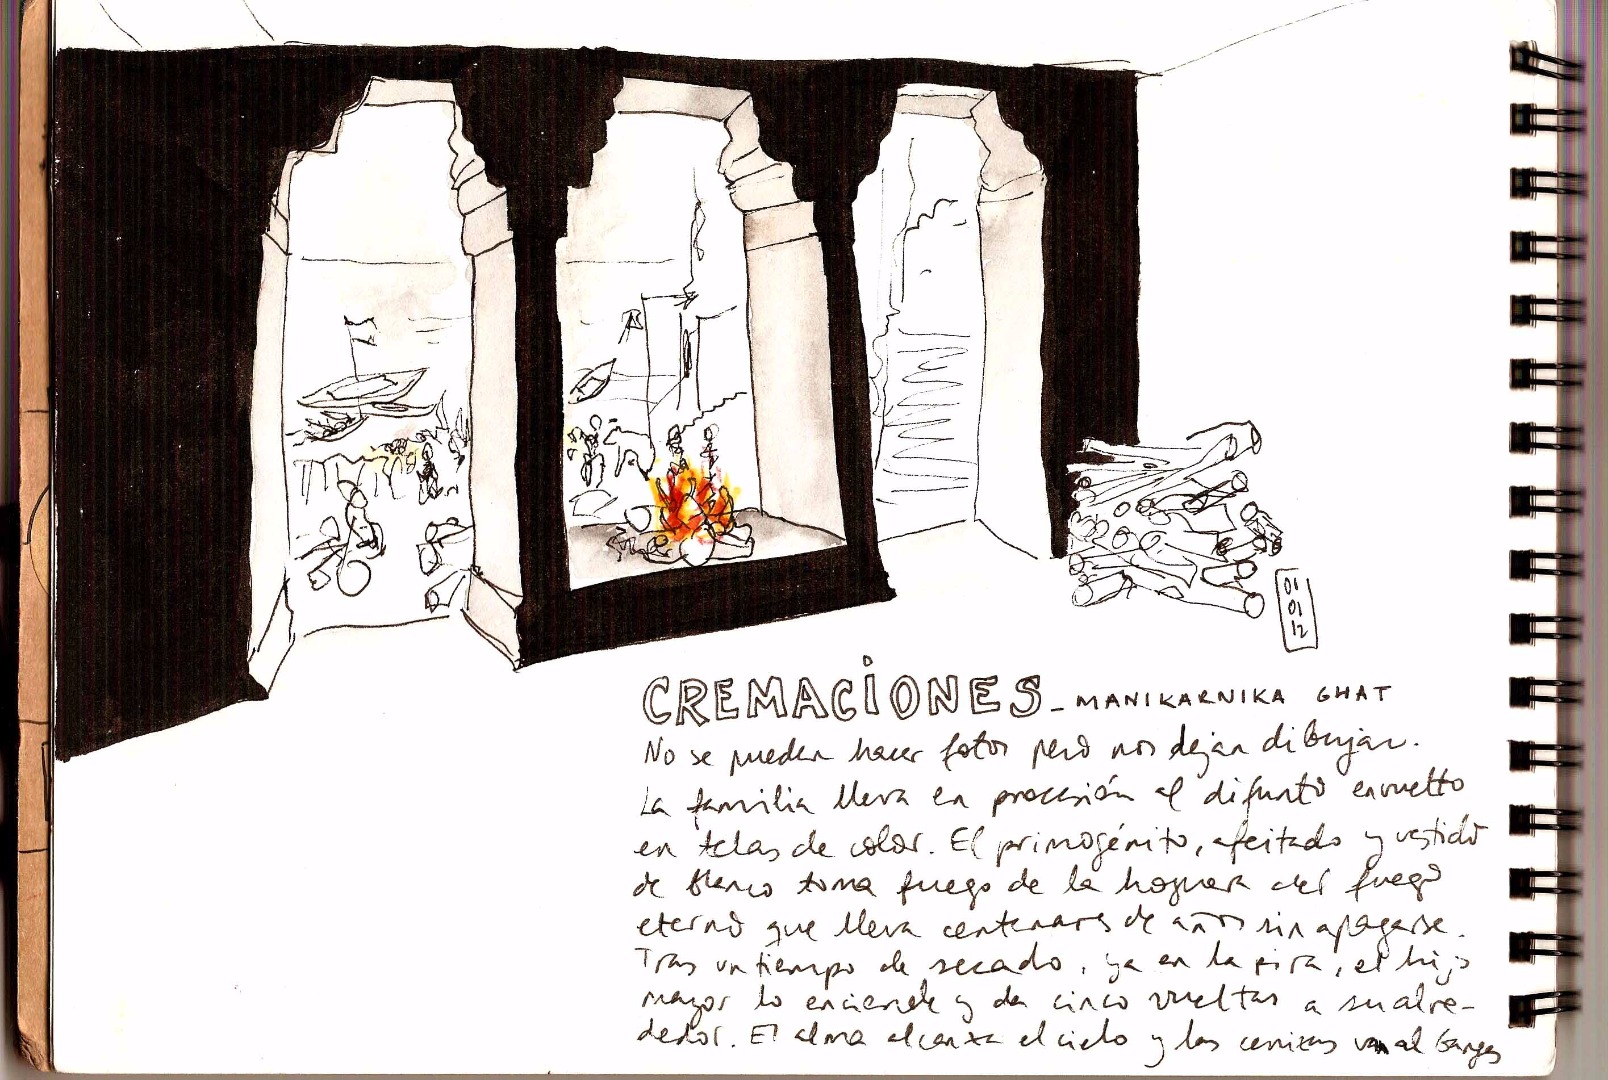 01
01
12
CREMACIONES - MANIKARNIKA GHAT
No se pueden hacer fotos pero nos dejan dibujar.
La familia lleva en procesión al difunto envuelto
en telas de color. El primogénito, afeitado y vestido
de blanco toma fuego de la hoguera del fuego
eterno que lleva centenares de años sin apagarse.
Tras un tiempo de secado, ya en la pira, el hijo
mayor lo enciende y da cinco vueltas a su alre-
dedor. El alma alcanza el cielo y las cenizas van al Ganges